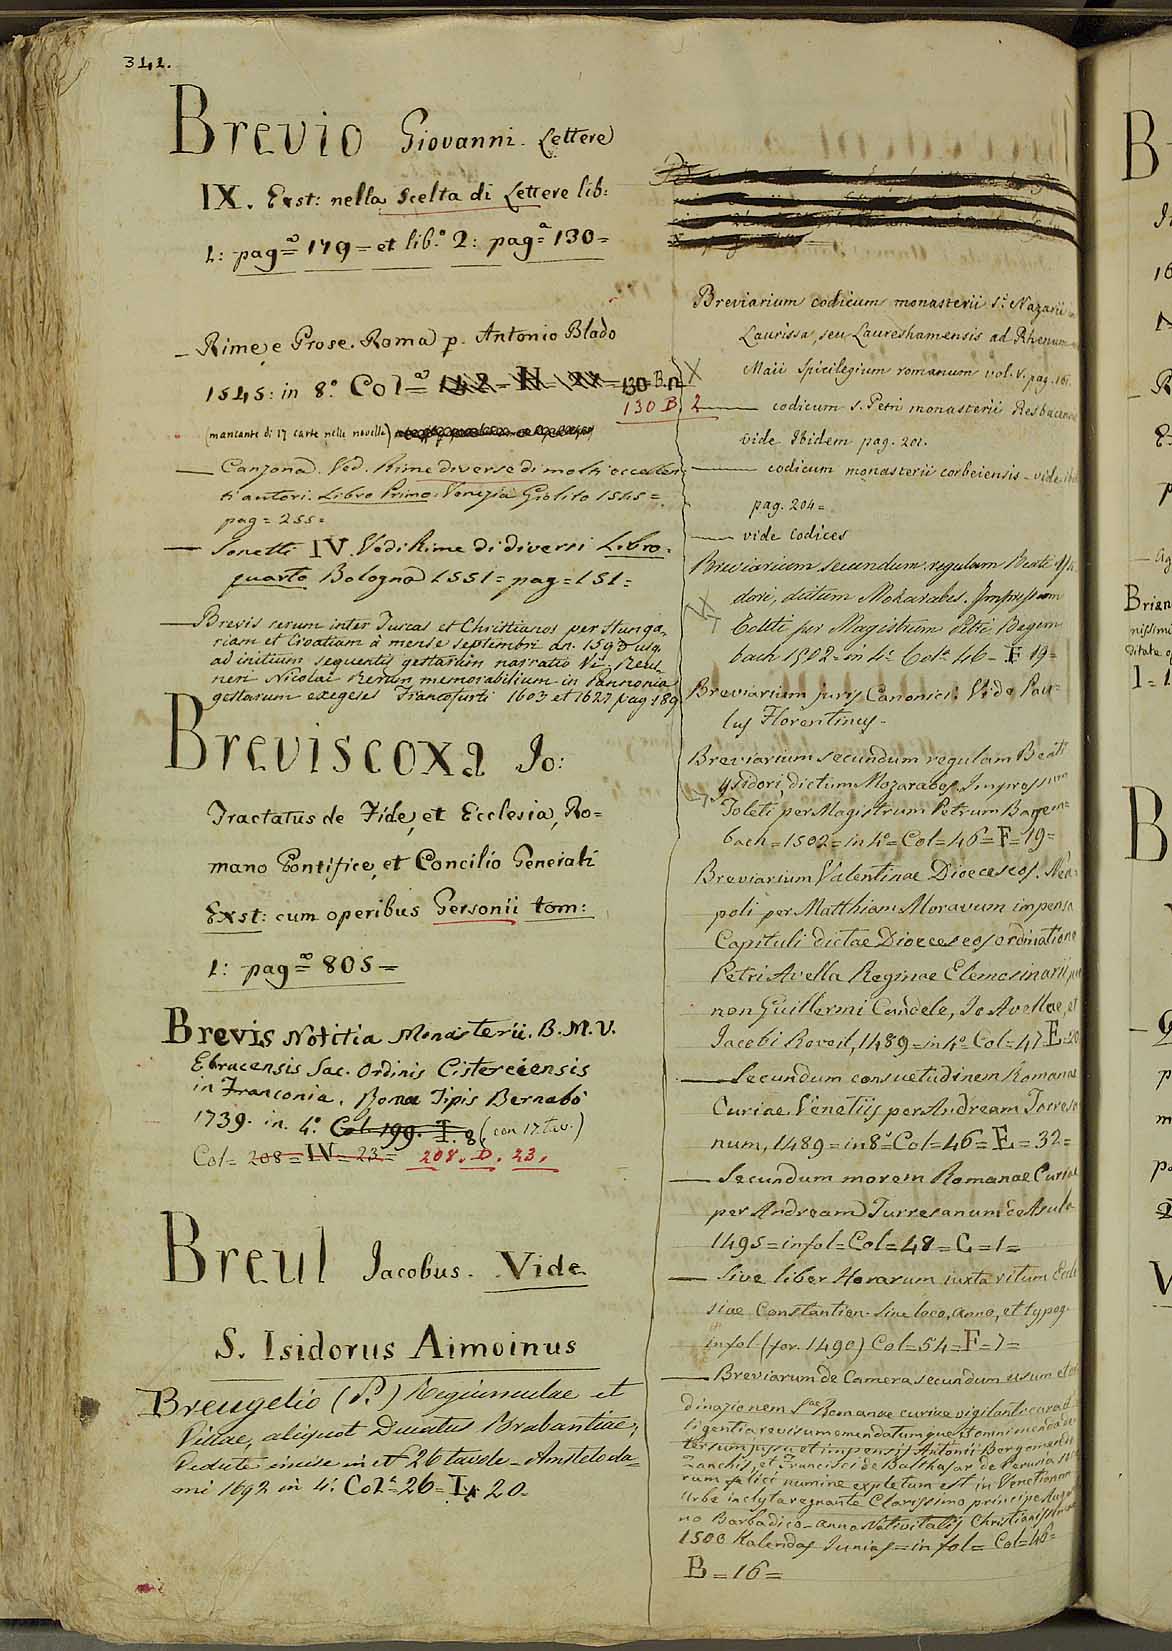 341.
Brevio Giovanni. Lettere
IX. Exst: nella Scelta di Lettere lib:
1: pag.ª 179 = et lib.º 2: pag.ª 130 =
_ Rime, e Prose. Roma p. Antonio Blado
1545: in 8.º Col.ª 130. B. 2
130 B. 2
(mancante di 17 carte nelle novelle)
— Canzona. Ved. Rime diverse di molti eccellen
ti autori. Libro Primo. Venezia Giolito 1545 =
pag = 255 =
— Sonetti IV. Vedi Rime di diversi Libro
quarto Bologna 1551 = pag = 151 =
— Brevis rerum inter Turcas et Christianos per Hunga,
riam et Croatiam à mense septembri an. 159 usq.
ad initium sequentis gestarum narratio Vi. Reus,
ner Nicolai Rerum memorabilium in Pannonia
gestarum exegeses Francofurti 1603 et 1627 pag 189
Breviscoxa Jo:
Tractatus de Fide, et Ecclesia, Ro=
mano Pontifice, et Concilio Generali
Exst: cum operibus Gersonii tom:
1: pag.ª 805 =
Brevis Notitia Monasterii. B. M. V.
Ebracensis Sac. Ordinis Cisterciensis
in Franconia. Romæ Tipis Bernabò
1739. in. 4.º Col. 199. I. 8. (con 17 tav.)
Col = 208 = IV = 23 = 208. D. 23.
Breul Jacobus. Vide
S. Isidorus Aimoinus
Breugelio (P.) Regiunculae et
Villae, aliquot Ducatus Brabantiae,
Vedute incise in nº 26 tavole – Amsteloda=
mi 1692 in 4.º Col.ª 26 = I. 20.
Breviarium codicum monasterii S.ti Nazarii in
Laurissa, seu Laureshamensis ad Rhenum
Maii Spicilegium romanum vol. V. pag. 161.
— codicum S. Petri monasterii Resbacen
vide Ibidem pag. 201.
— codicum monasterii corbeiensis – vide ibi
pag. 204 =
— vide Codices
Breviarium secundum regulam Beati Ysi
dori, dictum Mozarabes. Impressum
Toleti per Magistrum Petri Hagem
bach 1502 = in 4.º Col.ª 46 = F 19 =
Breviarium juris Canonici: Vide Pau=
lus Florentinus.
Breviarium secundum regulam Beati
Ysidori, dictum Mozarabes. Impressum
Toleti per Magistrum Petrum Hagem=
bach = 1502 = in 4.º = Col = 46 = F = 19 =
Breviarium Valentinae Dioecesos. Nea=
poli per Matthiam Moravum impensa
Capituli dictae Dioeceseos ordinatione
Petri Avella Reginae Elemosinarii,
non Guillermi Candele, Jo Avellae, et
Jacobi Roveil, 1489 = in 4.º Col = 47 E = 20
— Secundum consuetudinem Romanae
Curiae. Venetiis per Andream Torresa
num, 1489 = in 8.º = Col = 46 = E = 32 =
— Secundum morem Romanae Curiae
per Andream Turresanum de Asula
1495 = in fol = Col = 48 = C = 1 =
— Sive liber Horarum iuxta ritum Eccle
siae Constantien. Sine loco, anno, et typog.
in fol. (for. 1490) Col = 54 = F = 7 =
— Breviarum de Camera secundum usum et or
dinazionem S.ae Romanae curiae vigilanti cura
ligentia revisum emendatumque et omni menda de
tersum jussu et impensis Antonii Bergomensis
Zanchis, et Francisci de Balthasar de Perusia
rum felici numine expletum est in Venetiarum
Urbe inclyta regnante Clarissimo principe Augusti
no Barbadico – anno Nativitatis Christianissime
1500 Kalendas Junias = in fol = Col = 46 =
B = 16 =